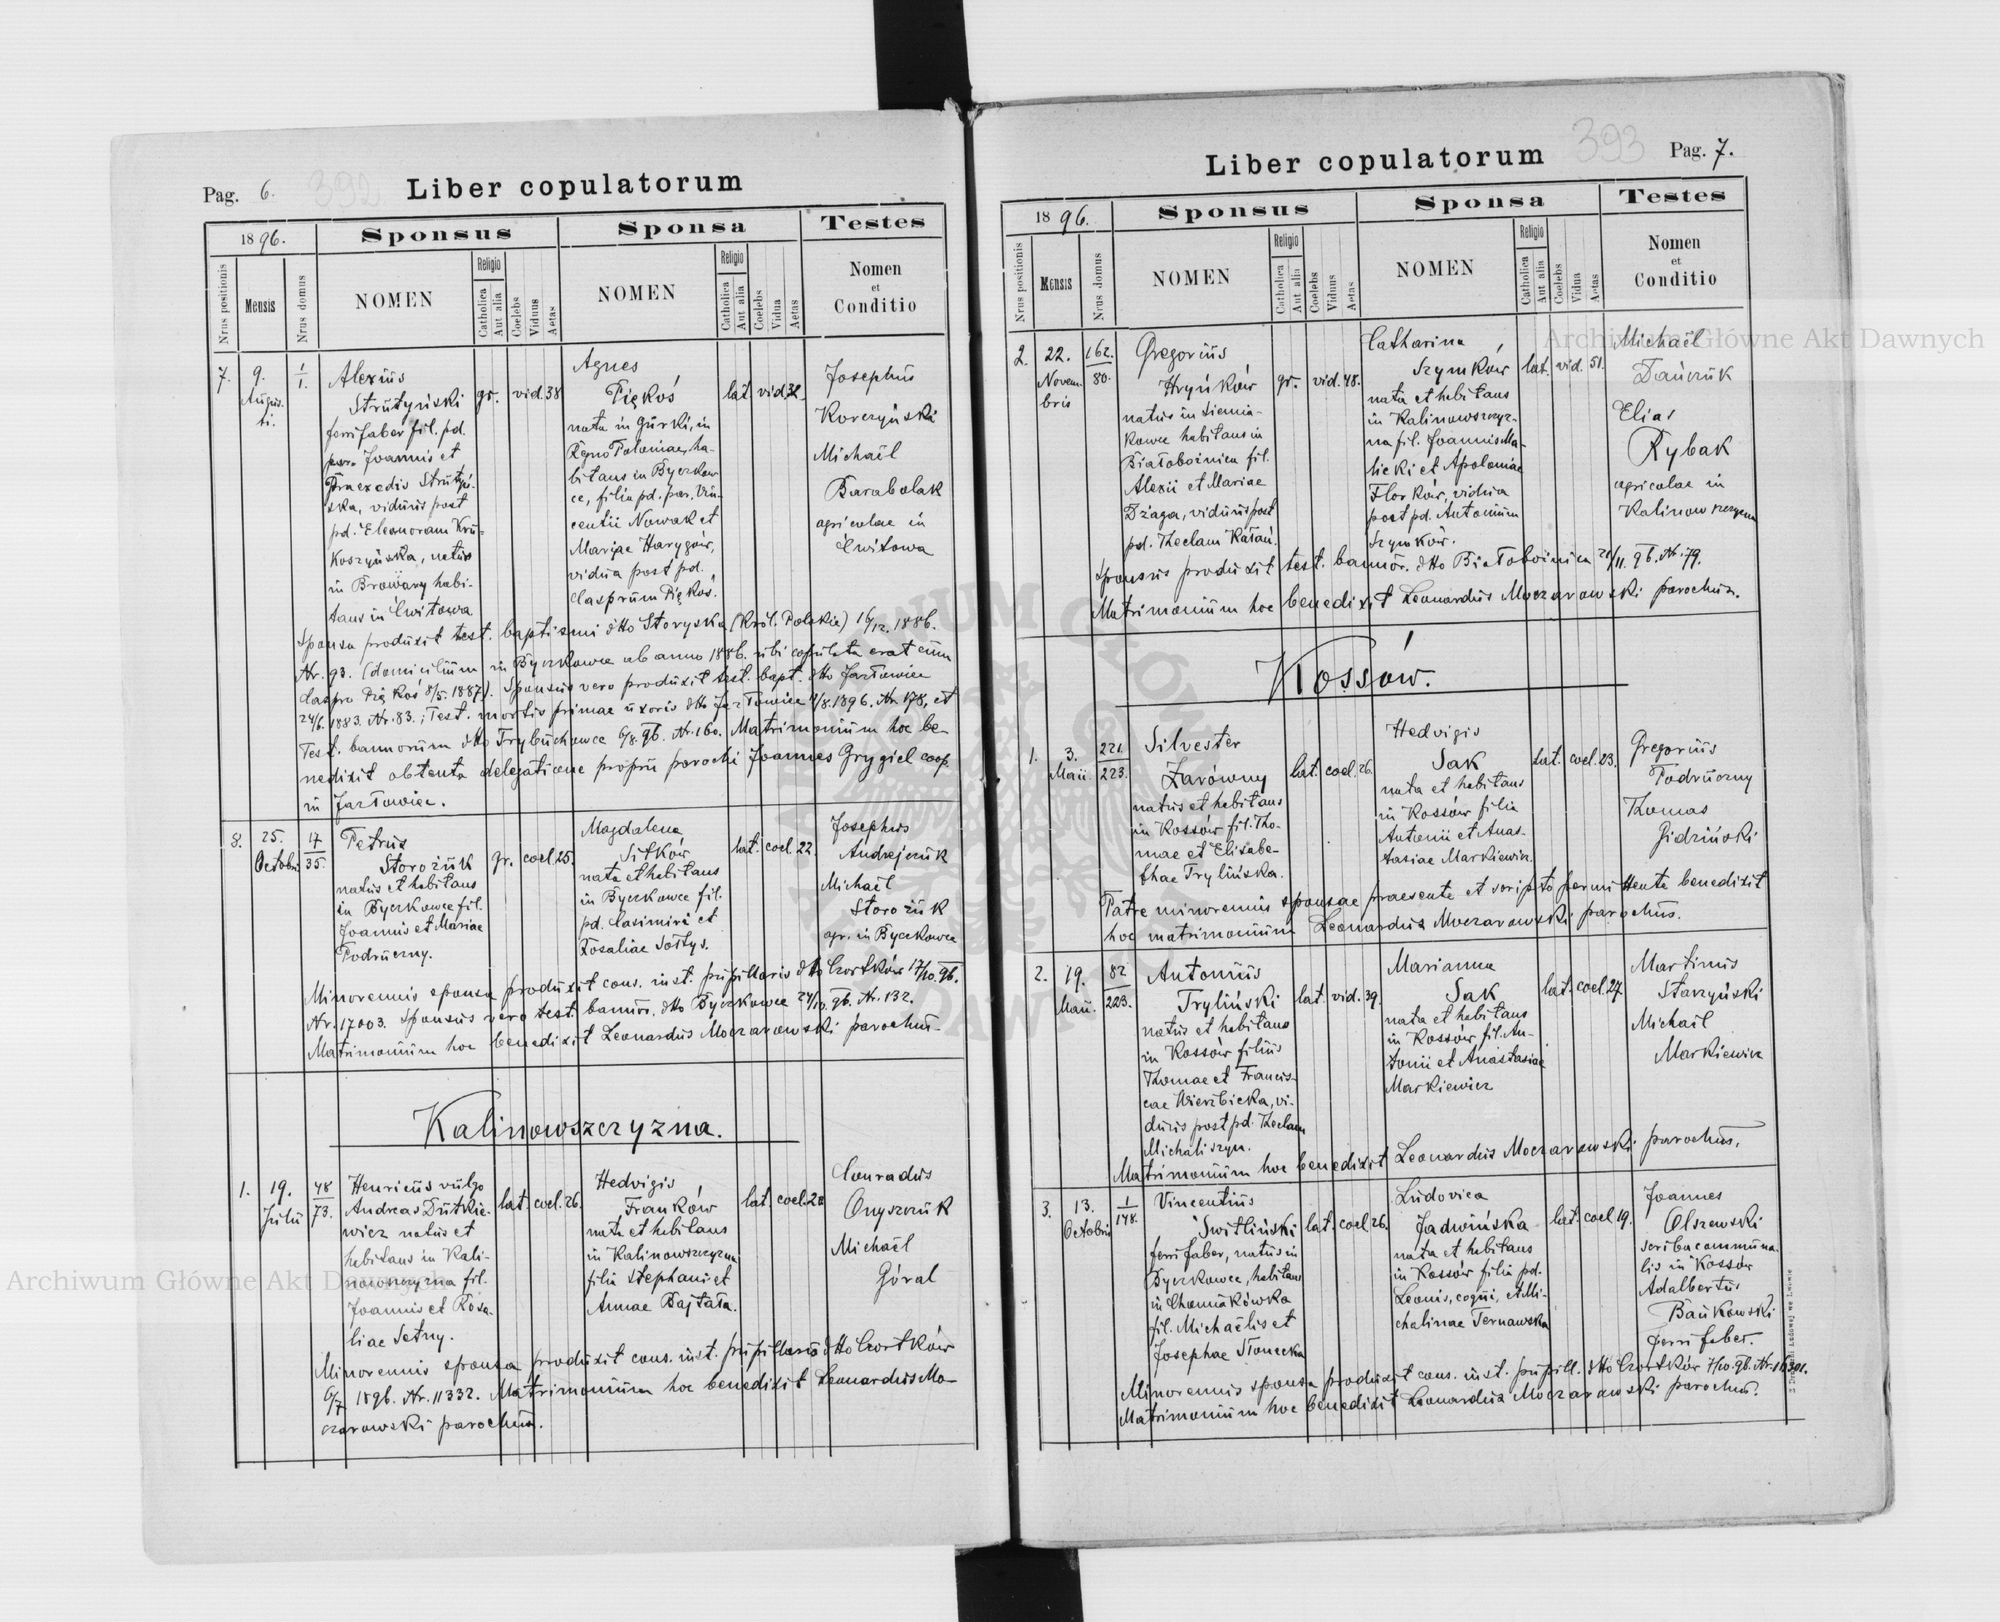 Pag. 6. 392 Liber copulatorum
1896. Sponsus Sponsa Testes
Nrus positionis Mensis Nrus domus NOMEN Religio Catholica Aut alia Coelebs Viduus Aetas NOMEN Religio Catholica Aut alia Coelebs Vidua Aetas Nomen et Conditio
7. 9. Augusti. 1/1.
Alexius
Strutyński
ferrifaber fil. pd.
par. Joannis et
Praxedis Strutyń-
ska, viduus post
pd. Eleonoram Kru-
koszyńska, natus
in Browary habi-
tans in Ćwitowa
gr. vid. 38
Agnes
Piękoś
nata in Gurki, in
Regno Poloniae, ha-
bitans in Byczkow-
ce, filia pd. par. Vin-
centii Nowak et
Mariae Harygów,
vidua post pd.
Casprum Piękoś.
lat. vid.
Josephus
Korczyński
Michaël
Barabolak
agricolae in
Ćwitowa
Sponsa produxit test. baptismi dtto Storyska (Król. Polskie) 16/12. 1886.
Nr. 93. (domicilium in Byczkowce ab anno 1886. ubi copulata erat cum
Caspro Piękoś 8/5. 1887). Sponsus vero produxit test. bapt. dtto Jazłowiec
24/6. 1883. Nr. 83.; Test. mortis primae uxoris dtto Jazłowiec 4/8. 1896. Nr. 178, et
Test. bannorum dtto Trybuchowce 6/8. 96. Nr. 160. Matrimonium hoc be-
nedixit obtenta delegatione proprii parochi Joannes Grygiel coop.
in Jazłowiec.
8. 25. Octobris 17/35.
Petrus
Storożuk
natus et habitans
in Byczkowce fil.
Joannis et Mariae
Podruczny.
gr. coel. 25.
Magdalena
Sitków
nata et habitans
in Byczkowce fil.
pd. Casimiri et
Rosaliae Sołtys.
lat. coel. 22.
Josephus
Andrejczuk
Michaël
Storożuk
agr. in Byczkowce
Minorennis sponsa produxit cons. inst. pupillaris dtto Czortków 17/10. 96.
Nr. 17003. Sponsus vero test. bannor. dtto Byczkowce 24/10. 96. Nr. 132.
Matrimonium hoc benedixit Leonardus Moczarowski parochus.
Kalinowszczyzna.
1. 19. Julii 48/73.
Henricus vulgo
Andreas Dutkie-
wicz natus et
habitans in Kali-
nowszczyzna fil.
Joannis et Rosa-
liae Setny.
lat. coel. 26.
Hedvigis
Franków
nata et habitans
in Kalinowszczyzna
filia Stephani et
Annae Bajtała.
lat. coel. 20
Conradus
Onyszczuk
Michaël
Góral
Minorennis sponsa produxit cons. inst. pupillaris dtto Czortków
6/7 1896. Nr. 11332. Matrimonium hoc benedixit Leonardus Mo-
czarowski parochus.
Liber copulatorum 393 Pag. 7.
1896. Sponsus Sponsa Testes
Nrus positionis Mensis Nrus domus NOMEN Religio Catholica Aut alia Coelebs Viduus Aetas NOMEN Religio Catholica Aut alia Coelebs Vidua Aetas Nomen et Conditio
2. 22. Novem-bris 162./80.
Gregorius
Hryńków
natus in Siemia-
kowce habitans in
Białobożnica fil.
Alexii et Mariae
Dżaga, viduus post
pd. Theclam Kałań.
gr. vid. 48.
Catharina
Szymków
nata et habitans
in Kalinowszczyz-
na fil. Joannis Ma-
licki et Apoloniae
Florków, vidua
post pd. Antonium
Szymków.
lat. vid. 51.
Michaël
Dańczuk
Elias
Rybak
agricolae in
Kalinowszczyzna
Sponsus produxit test. bannor. dtto Białobożnica 21/11. 96. Nr. 79.
Matrimonium hoc benedixit Leonardus Moczarowski parochus.
Kossów.
1. 3. Maii. 221./223.
Silvester
Zarówny
natus et habitans
in Kossów fil. Tho-
mae et Elisabe-
thae Trylińska.
lat. coel. 26.
Hedvigis
Sak
nata et habitans
in Kossów filia
Antonii et Anas-
tasiae Markiewicz.
lat. coel. 23.
Gregorius
Podruczny
Thomas
Gidziński
Patre minorennis sponsae praesente et scripto permittente benedixit
hoc matrimonium Leonardus Moczarowski parochus.
2. 19. Maii. 82/223.
Antonius
Tryliński
natus et habitans
in Kossów filius
Thomae et Francis-
cae Wierzbicka, vi-
duus post pd. Theclam
Michaliszyn.
lat. vid. 39.
Marianna
Sak
nata et habitans
in Kossów fil. An-
tonii et Anastasiae
Markiewicz
lat. coel. 27.
Martinus
Starzyński
Michaël
Markiewicz
Matrimonium hoc benedixit Leonardus Moczarowski parochus.
3. 13. Octobris 1/148.
Vincentius
Switliński
ferrifaber, natus in
Byczkowce, habitans
in Chomiakówka
fil. Michaëlis et
Josephae Słonecka
lat. coel. 26.
Ludovica
Jadwińska
nata et habitans
in Kossów filia pd.
Leonis, coqui, et Mi-
chalinae Ternawska
lat. coel. 19.
Joannes
Olszewski
scriba communa-
lis in Kossów
Adalbertus
Bańkowski
ferrifaber.
Minorennis sponsa produxit cons. inst. pupill. dtto Czortków 7/10. 96. Nr. 16301.
Matrimonium hoc benedixit Leonardus Moczarowski parochus.
Archiwum Główne Akt Dawnych
Archiwum Główne Akt Dawnych